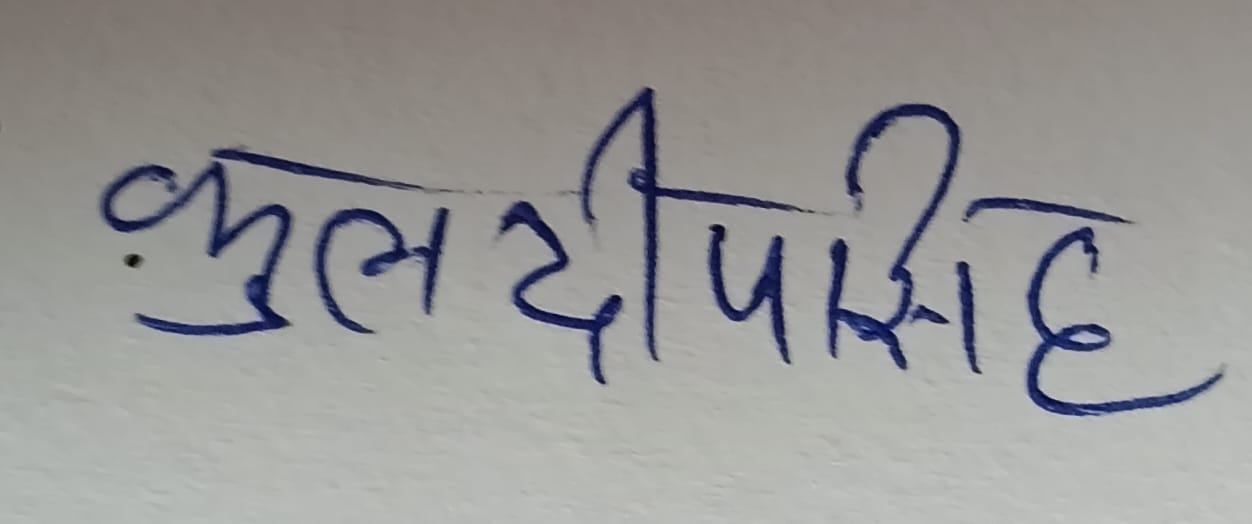 कुलदीप सिह